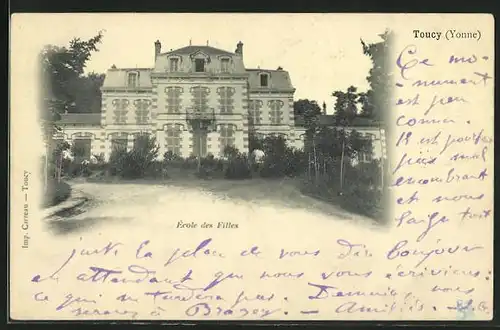 Toucy (Yonne)
Ce mo-
nument
est peu
connu.
Il est pourtant
pas mal
encombrant
et nous
laisse
École des Filles
Imp. Carreau — Toucy
juste la place de vous dire bonjour
en attendant que nous vous écrivions
ce qui ne tardera pas. Demain nous
serons à Brazey. — Amitiés.